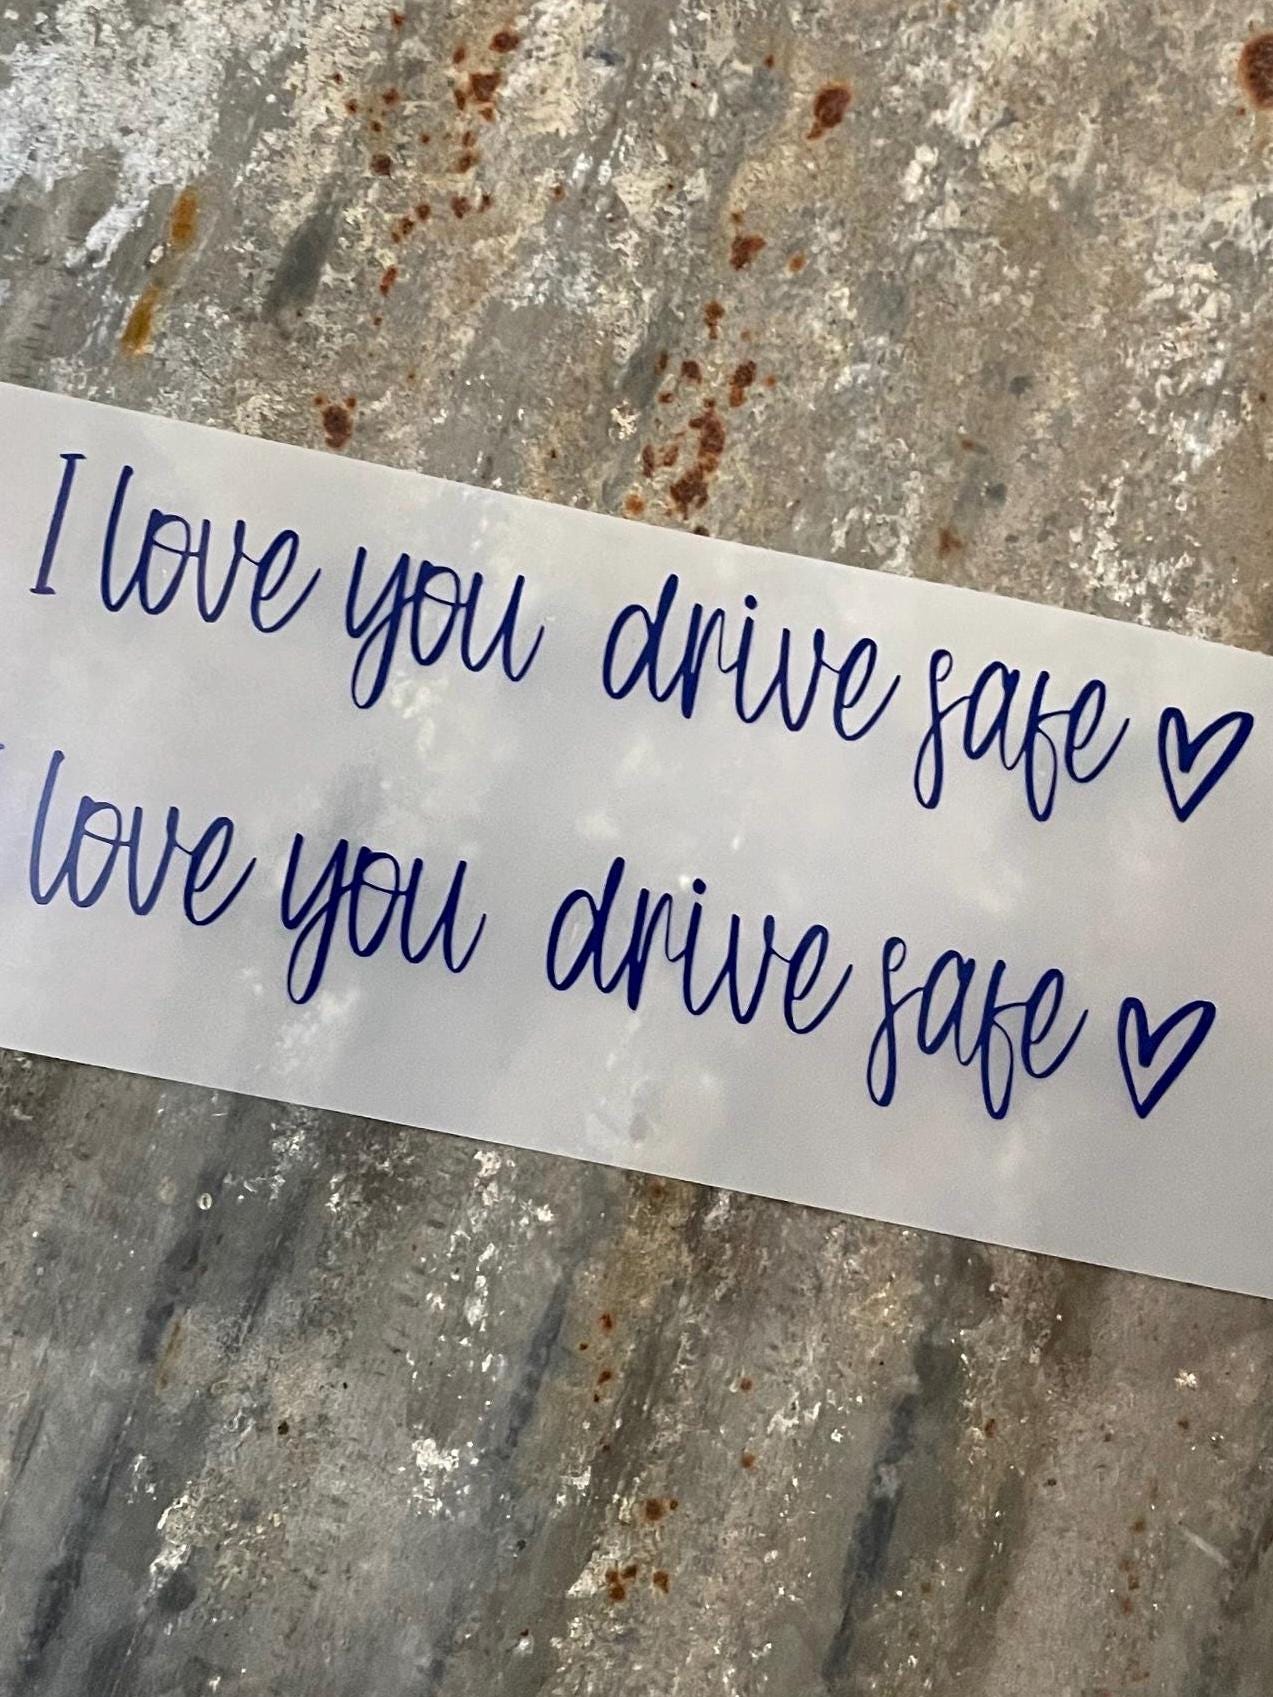 I love you drive safe ♡
love you drive safe ♡